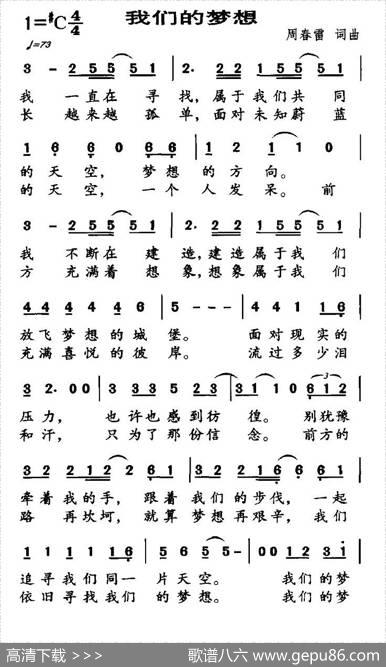 我们的梦想
1=♯C 4/4
♩=73
周春雷 词曲
3 - 2 5 5 5 1 | 2. 2 2 1 5 5 5 1 |
我 一直在 寻 找，属于我们共 同
长 越来越 孤 单，面对未知蔚 蓝
1 6 6 0 6 6 | 1 2 1 1 0 |
的天空， 梦想的方向。
的天空， 一个人发呆。 前
3 - 2 5 5 5 1 | 2. 2 2 1 5 5 5 1 |
我 不断在 建 造，建造属于我 们
方 充满着 想 象，想象属于我 们
4 4 4 4 4 6 | 5 - - - | 4 4 1 1 6 |
放飞梦想的城 堡。 面对现实的
充满喜悦的彼 岸。 流过多少泪
3 2. 0 0 | 3 3 3 5 2 3 | 3 1 1 0 6 1 2 |
压力， 也许也感到彷 徨。 别犹豫
和汗， 只为了那份信 念。 前方的
3 2 2 1 2 2 6 | 3 2 2 1 6 6 6 1 |
牵着我的手， 跟着我们的步伐，一起
路 再坎坷， 就算梦想再艰辛，我们
1 1 1 1 1 | 5 6 5 5 - | 0 0 1 2 3 i |
追寻我们同一 片天空。 我们的梦
依旧寻找我们 的梦想。 我们的梦
高清下载 >>> 歌谱八六 www.gepu86.com